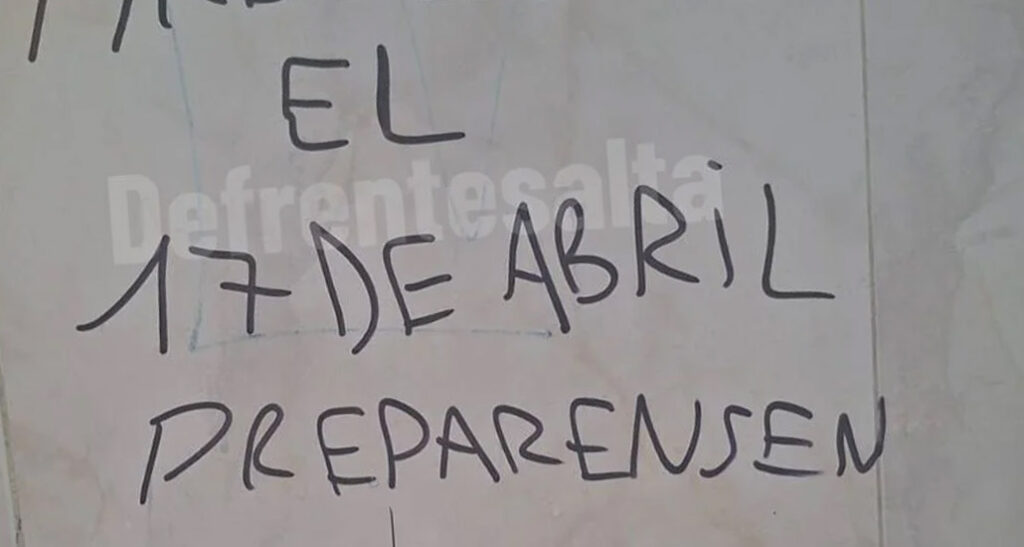 EL
Defrentesalta
17 DE ABRiL
PREPARENSEN